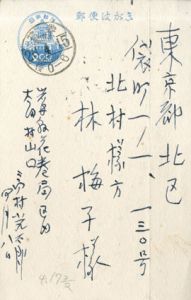 郵便はがき
東京都北区
袋町一ノ一一三〇号
北村様方
林梅子様
岩手縣花巻局区内
太田村山口
高村光太郎
四月八日